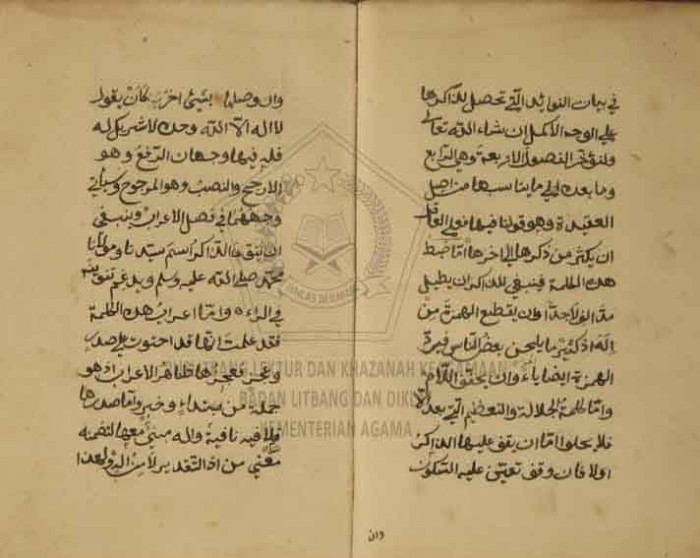 في بيان الفوائد التي تحصل للذاكرها
علي الوجه الاكمل ان شاء الله تعالى
ولنؤخر الفصول الاربعة وهي الرابع
وما بعده الي ما يناسبها من اصل
العقيدة وهو قولنا فيها فعلي العاقل
ان يكثر من ذكرها الي اخرها اما ضبط
هذه الكلمة فينبغي للذاكر ان يطيل
مد الف لا جدا وان يقطع الهمزة من
اله اذ كثير ما يلحن بعض الناس فيرد
الهمزة ايضا ياء وان يحقق اللام
واما كلمة الجلالة والتعظيم التي بعد الا
فلا يخلوا اما ان يقف عليها الذاكر
اولا فان وقف تعين عليه السكون
وان
وان وصلها بشيئ اخر كان يقول
لا اله الا الله وحده لا شريك له
فله فيها وجهان الرفع وهو
الارجح والنصب وهو المرجوح وسياتي
وجههما في فصل الاعراب وينبغي
ان ينون الذاكر اسم سيدنا ومولانا
محمد صلى الله عليه وسلم ويدغم تنوينه
في الراء واما اعراب هذه الكلمة
فقد علمت انها قد احتوت علي صدر
وعجز فعجزها ظاهر الاعراب اذ هو
جملة من مبتداء وخبر واما صدرها
فلا فيه نافية واله مبني معها لتضمنه
معني من اذ التقدير لا من اله ولهذا
PUSLITBANG LEKTUR DAN KHAZANAH KEAGAMAAN
BADAN LITBANG DAN DIKLAT
KEMENTERIAN AGAMA
IKHLAS BERAMAL